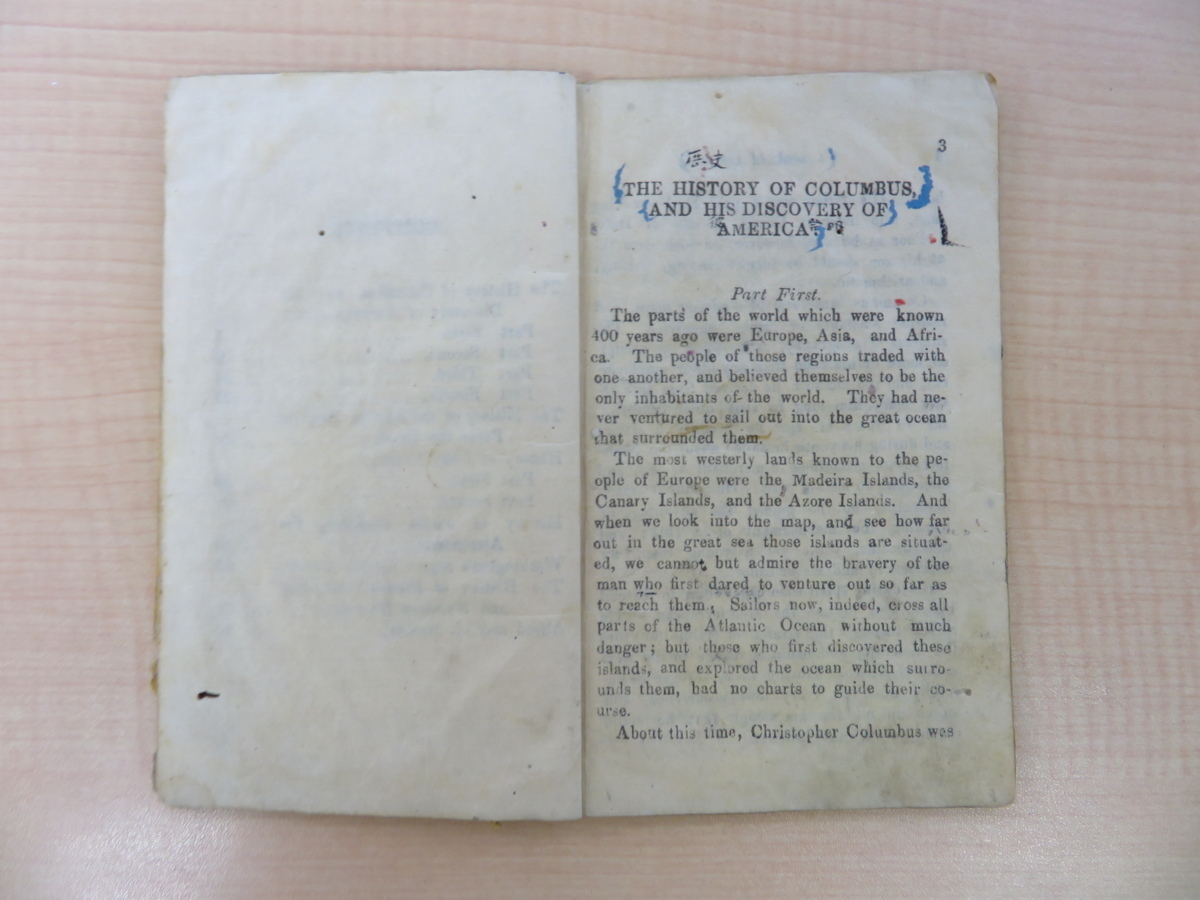 3
歴史
THE HISTORY OF COLUMBUS,
AND HIS DISCOVERY OF
AMERICA.
Part First.
The parts of the world which were known
400 years ago were Europe, Asia, and Afri-
ca. The people of those regions traded with
one another, and believed themselves to be the
only inhabitants of the world. They had ne-
ver ventured to sail out into the great ocean
that surrounded them.
The most westerly lands known to the pe-
ople of Europe were the Madeira Islands, the
Canary Islands, and the Azore Islands. And
when we look into the map, and see how far
out in the great sea those islands are situat-
ed, we cannot but admire the bravery of the
man who first dared to venture out so far as
to reach them. Sailors now, indeed, cross all
parts of the Atlantic Ocean without much
danger; but those who first discovered these
islands, and explored the ocean which surro-
unds them, had no charts to guide their co-
urse.
About this time, Christopher Columbus was